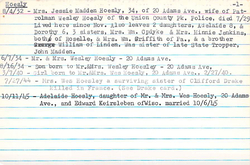 Hoesly -1-
8/4/32 - Mrs. Jessie Madden Hoesly, 34, of 20 Adams Ave., wife of
Wesley Hoesly of the Union County Pk. Police, died 7/29
Lived here since Nov. She leaves 2 daughters, Adelaide 8, &
Dorothy 6, 3 sisters, Mrs. Wm. Opdyke & Mrs. Minnie Jenkins,
both of Roselle, & Mrs. Wm. Griffith of Pa., & a brother
William of Linden. Was sister of late State Trooper,
John Madden.
6/7/34 - Mr. & Mrs. Wesley Hoesly - 20 Adams Ave.
Son born to Mr. & Mrs. Wesley Hoesly - 20 Adams Ave.
Mrs. Wes Hoesly a surviving sister of Clifford Drake
killed in France.
10/11/45 - Adelaide Hoesly, daughter of Mr. & Mrs. Wes Hoesly, 20 Adams
Ave., and Edward Keirsleben of Wisc. married 10/6/45